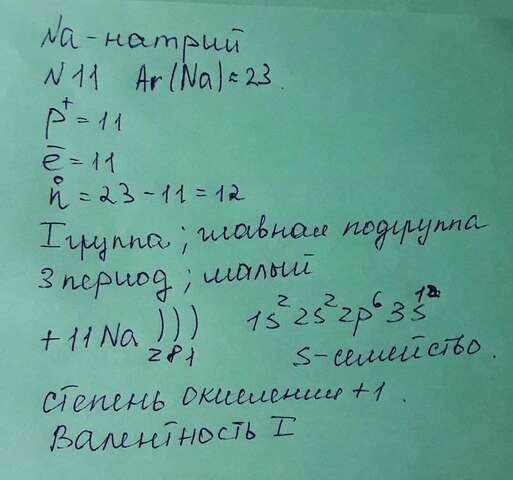 Na - натрий
N 11 Ar(Na) = 23.
p⁺ = 11
ē = 11
n⁰ = 23 - 11 = 12
I группа; главная подгруппа
3 период; малый
+11Na ))) 1s² 2s² 2p⁶ 3s¹
2 8 1 s-семейство.
степень окисления +1.
Валентность I